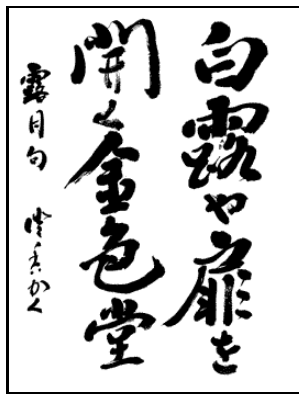 白露や扉を
開く金色堂
露月句 かく